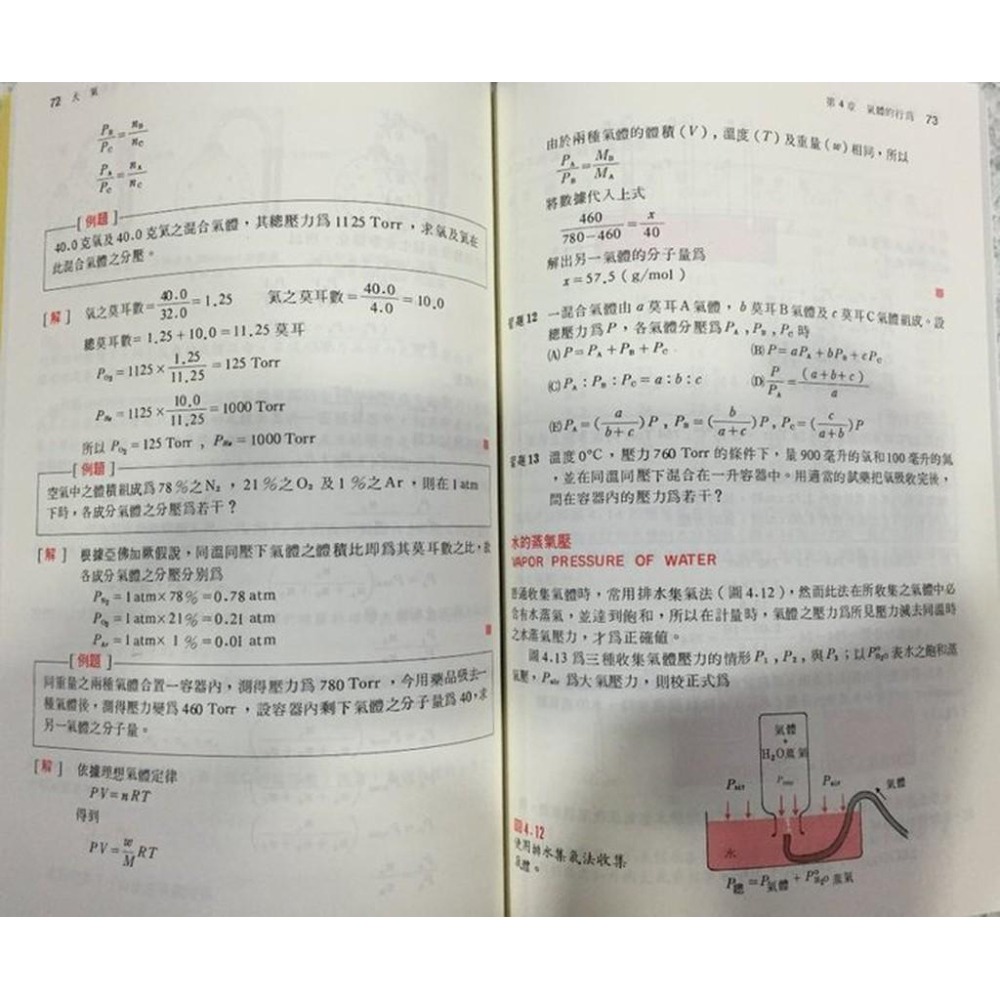 72 大氣
P_B/P_C = n_B/n_C
P_A/P_C = n_A/n_C
[例題]
40.0克氧及40.0克氦之混合氣體，其總壓力爲1125 Torr，求氧及氦在
此混合氣體之分壓。
[解] 氧之莫耳數=40.0/32.0=1.25 氦之莫耳數=40.0/4.0=10.0
總莫耳數=1.25+10.0=11.25 莫耳
P_O₂=1125×1.25/11.25=125 Torr
P_He=1125×10.0/11.25=1000 Torr
所以 P_O₂=125 Torr，P_He=1000 Torr
[例題]
空氣中之體積組成爲78%之N₂，21%之O₂及1%之Ar，則在1atm
下時，各成分氣體之分壓爲若干？
[解] 根據亞佛加厥假說，同溫同壓下氣體之體積比即爲其莫耳數之比，故
各成分氣體之分壓分別爲
P_N₂=1atm×78%=0.78 atm
P_O₂=1atm×21%=0.21 atm
P_Ar=1atm×1%=0.01 atm
[例題]
同重量之兩種氣體合置一容器內，測得壓力爲780 Torr，今用藥品吸去一
種氣體後，測得壓力變爲460 Torr，設容器內剩下氣體之分子量爲40，求
另一氣體之分子量。
[解] 依據理想氣體定律
PV=nRT
得到
PV=w/M RT
第4章 氣體的行爲 73
由於兩種氣體的體積(V)，溫度(T)及重量(w)相同，所以
P_A/P_B=M_B/M_A
將數據代入上式
460/780-460=x/40
解出另一氣體的分子量爲
x=57.5(g/mol)
習題12 一混合氣體由a莫耳A氣體，b莫耳B氣體及c莫耳C氣體組成。設
總壓力爲P，各氣體分壓爲P_A,P_B,P_C時
(A)P=P_A+P_B+P_C (B)P=aP_A+bP_B+cP_C
(C)P_A:P_B:P_C=a:b:c (D)P/P_A=(a+b+c)/a
(E)P_A=(a/b+c)P,P_B=(b/a+c)P,P_C=(c/a+b)P
習題13 溫度0°C，壓力760 Torr的條件下，量900毫升的氧和100毫升的氮
，並在同溫同壓下混合在一升容器中。用適當的試藥把氧吸收完後，
問在容器內的壓力爲若干？
水的蒸氣壓
VAPOR PRESSURE OF WATER
普通收集氣體時，常用排水集氣法(圖4.12)，然而此法在所收集之氣體中必
含有水蒸氣，並達到飽和，所以在計量時，氣體之壓力爲所見壓力減去同溫時
之水蒸氣壓力，才爲正確値。
圖4.13爲三種收集氣體壓力的情形P₁,P₂,與P₃；以P°_H₂O表水之飽和蒸
氣壓，P_air爲大氣壓力，則校正式爲
氣體
+
H₂O蒸氣
P_air P_air 氣體
水
圖4.12
使用排水集氣法收集
氣體。
P總=P氣體+P°_H₂O蒸氣